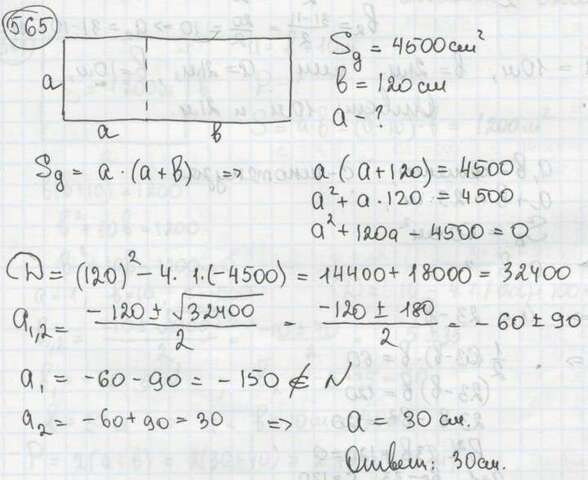 565
Sg = 4500 см²
в = 120 см
a - ?
a
a в
Sg = a · (a + в) => a (a + 120) = 4500
a² + a · 120 = 4500
a² + 120a - 4500 = 0
D = (120)² - 4 · 1 · (-4500) = 14400 + 18000 = 32400
a₁,₂ = (-120 ± √32400)/2 = (-120 ± 180)/2 = -60 ± 90
a₁ = -60 - 90 = -150 ∉ N
a₂ = -60 + 90 = 30 => a = 30 см.
Ответ: 30 см.